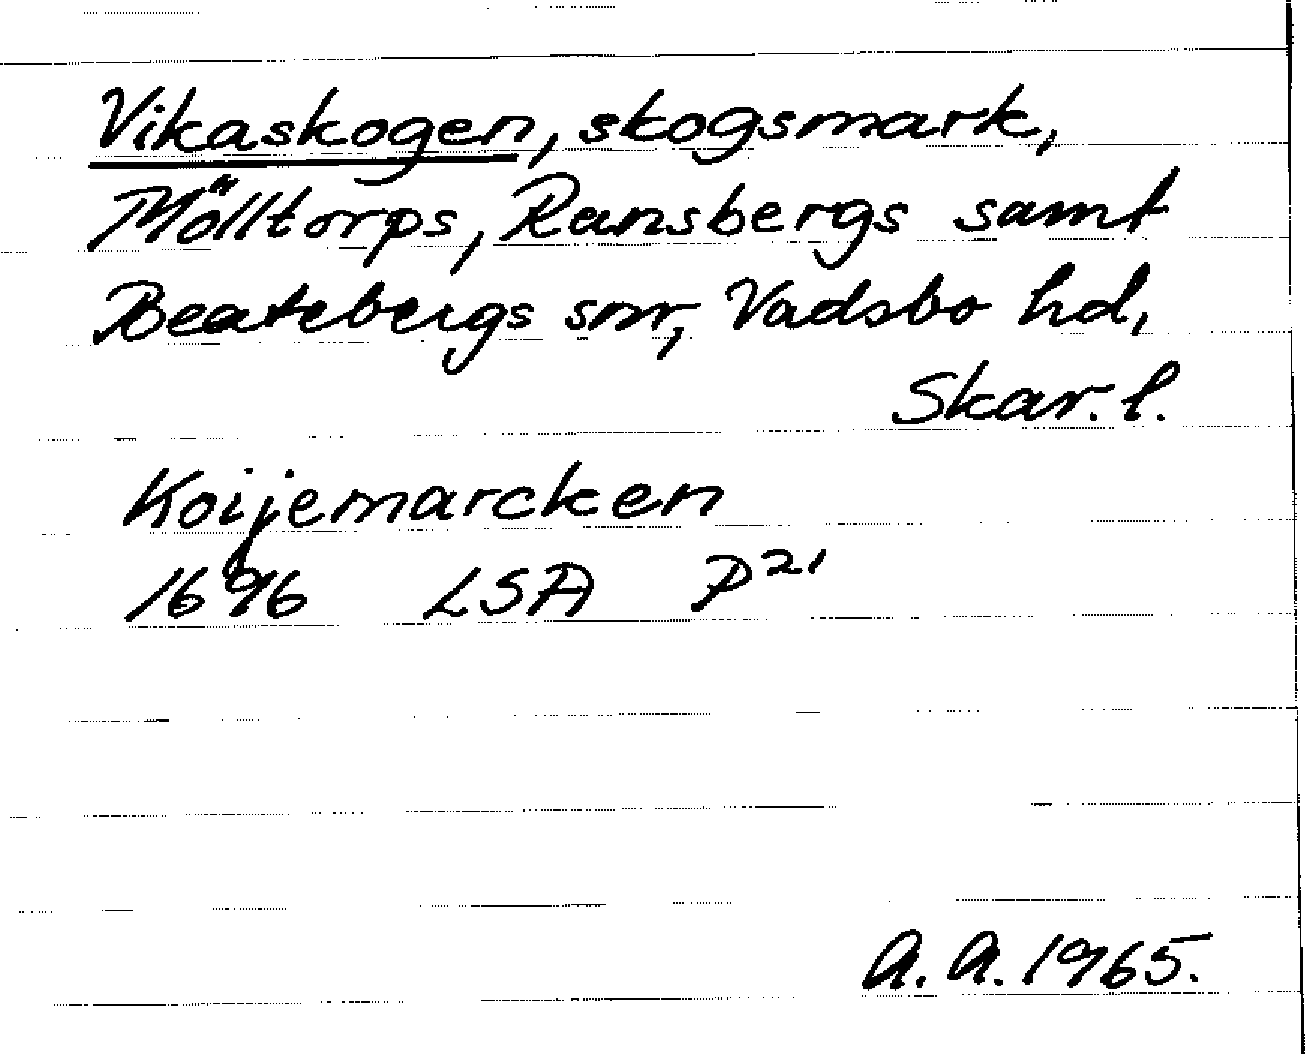 Vikaskogen, skogsmark,
Mölltorps, Ransbergs samt
Beatebergs snr, Vadsbo hd,
Skar. l.
Koijemarcken
1696 LSA P²¹
A. A. 1965.